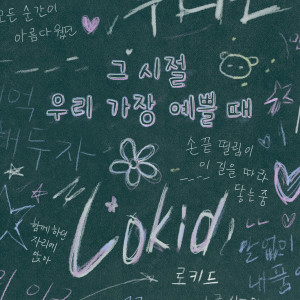 모든 순간이
아름다웠고
그 시절
우리 가장 예쁠 때
손끝 떨림이
이 길을 따라
닿는 중
함께 하던
자리에
앉아
Lokid
로키드
말없이